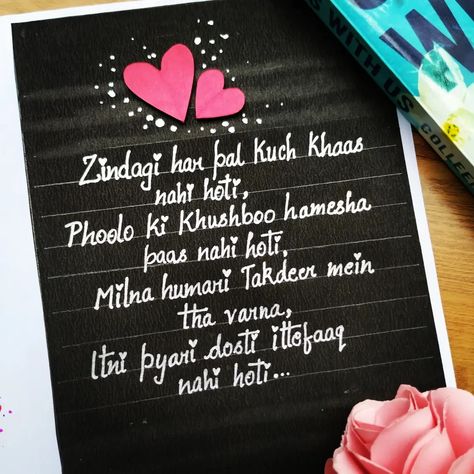 Zindagi har pal kuch khaas
nahi hoti,
Phoolo ki khushboo hamesha
paas nahi hoti,
Milna humari Takdeer mein
tha varna,
Itni pyari dosti ittofaaq
nahi hoti...
WITH US
COLLEEN